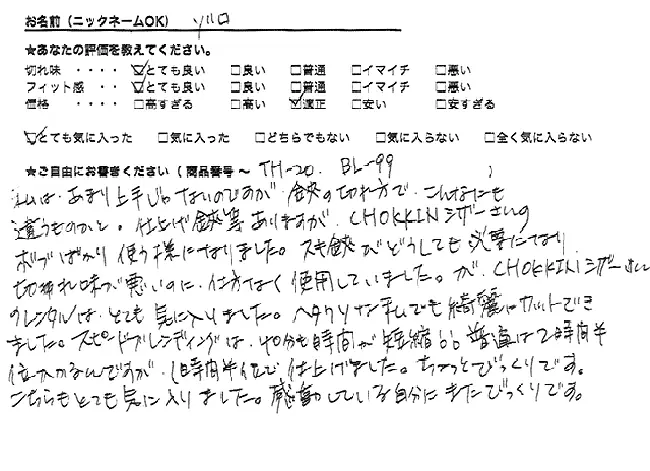 お名前（ニックネームOK） ゾロ
★あなたの評価を教えてください。
切れ味 ・・・・ ☑とても良い □良い □普通 □イマイチ □悪い
フィット感 ・・・ ☑とても良い □良い □普通 □イマイチ □悪い
価格 ・・・・ □高すぎる □高い ☑適正 □安い □安すぎる
☑とても気に入った □気に入った □どちらでもない □気に入らない □全く気に入らない
★ご自由にお書きください（商品番号～ TH-20. BL-99 ）
私は、あまり上手じゃないのですが、鋏の切れ方で、こんなにも
違うものかと。仕上げ鋏等ありますが、CHOKKINシザーさんの
ボブばかり使う様になりました。スキ鋏がどうしても必要になり
切れ味が悪いのに、仕方なく使用していました。が、CHOKKINシザーさん
のレンタルは、とても気に入りました。ヘタクソな私でも綺麗にカットでき
ました。スピードブレンディングは、40分も時間が短縮 普通は2時間半
位かかるんですが、1時間半位で仕上げました。ちょっとびっくりです。
こちらもとても気に入りました。感動している自分にまたびっくりです。